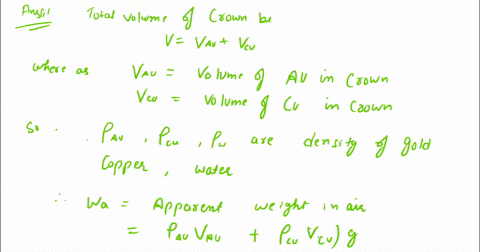 Ans:1 Total volume of Crown be
V = VAU + VCU
where as VAU = Volume of AU in Crown
VCU = Volume of CU in Crown
So . . ρAU , ρCU , ρW are density of gold
Copper , water
∴ Wa = Apparent weight in air
= ρAU VAU + ρCU VCU) g